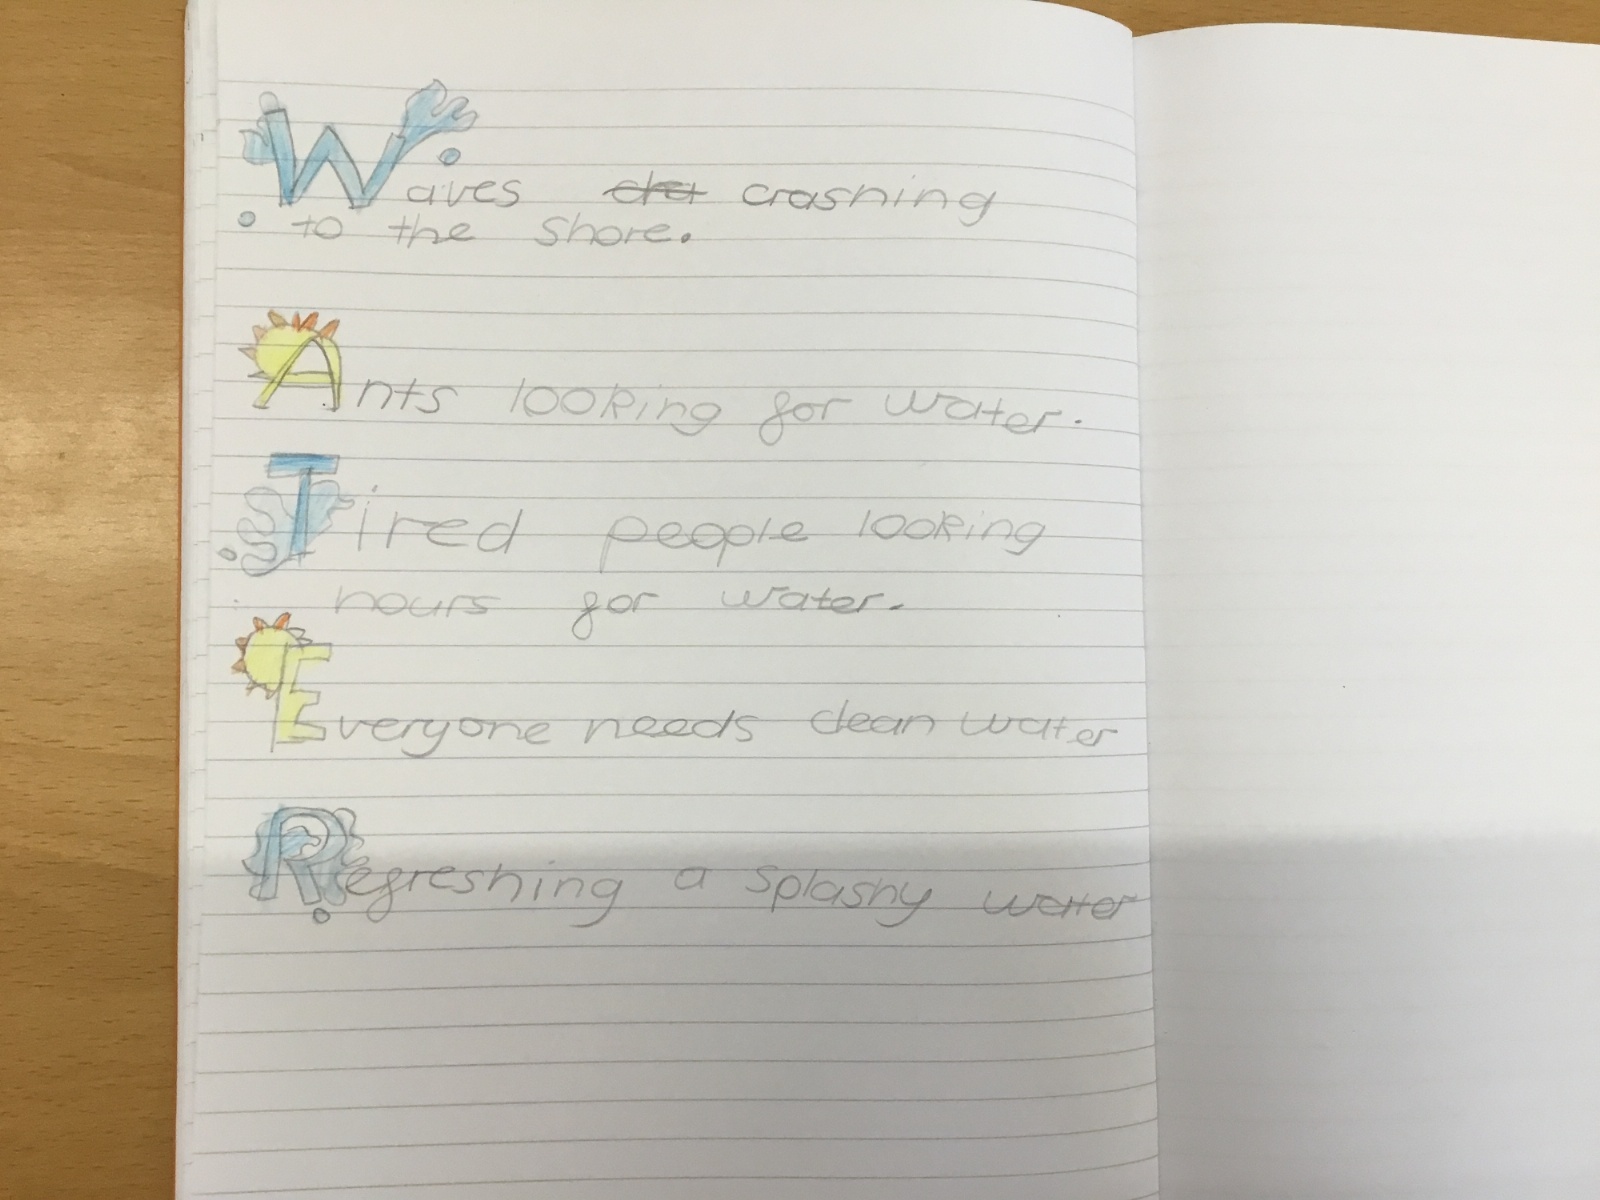 Waves crashing
to the shore.
Ants looking for water.
Tired people looking
hours for water.
Everyone needs clean water
Refreshing a splashy water